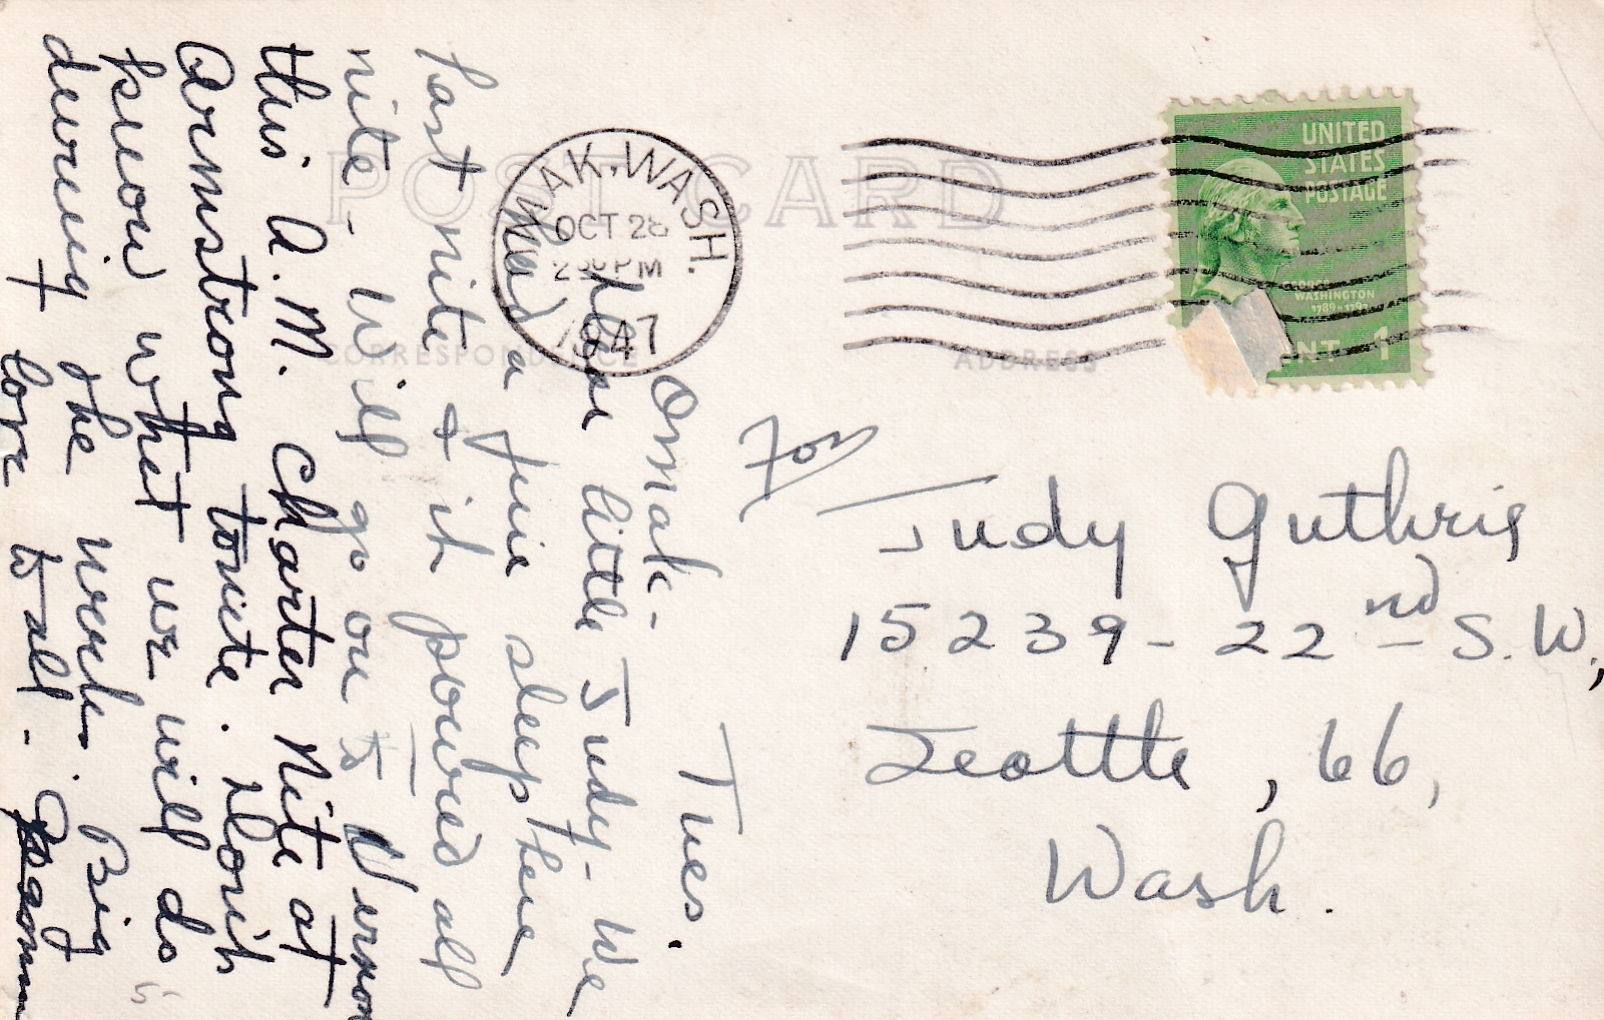 POST CARD
CORRESPONDENCE
ADDRESS
OMAK, WASH.
OCT 28
2 30 PM
1947
UNITED
STATES
POSTAGE
GEORGE
WASHINGTON
1789-1797
NT 1
Omak - Tues.
Dear little Judy - We
had a fine sleep here
last nite & it poured all
nite - Will go on to Vernon
this A.M. Charter Nite at
Armstrong tonite. Don't
know what we will do
during the week. Big
love to all -
For
Judy Guthrie
15239 - 22nd S.W.,
Seattle, 66,
Wash.